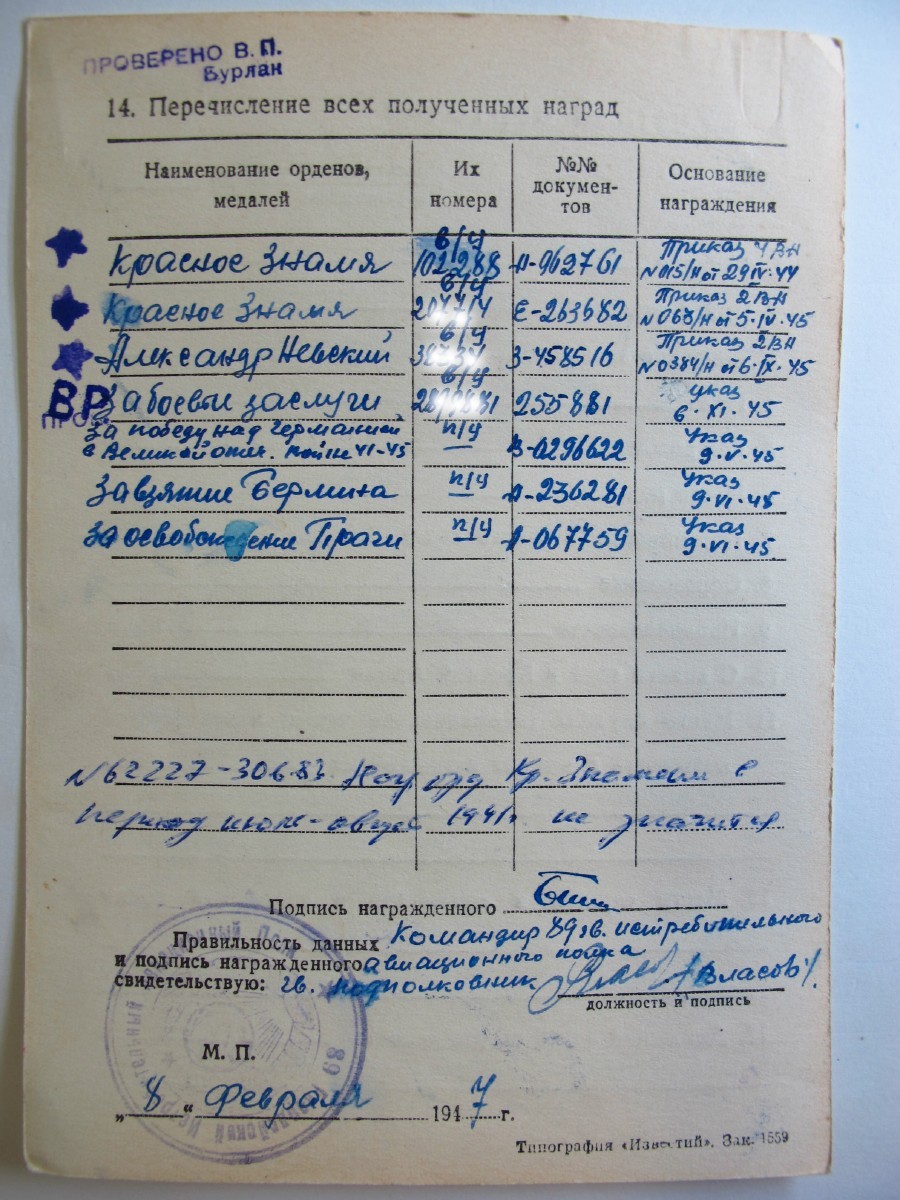 ПРОВЕРЕНО В. П.
Бурлак
14. Перечисление всех полученных наград
Наименование орденов, медалей
Их номера
№№ документов
Основание награждения
Красное Знамя в/ч 102288 А-962761 Приказ 4 ВН №015/Н от 29 IV·44
Красное Знамя в/ч Е-263682 Приказ 2/ВН №063/Н от 5·IV·45
Александр Невский в/ч З-458516 Приказ 2/ВН №0384/Н от 6·IX·45
ВР За боевые заслуги в/ч 255881 Указ 6·XI·45
За победу над Германией
в Великой отеч. войне 41-45 п/ч В-0296622 Указ 9·V·45
За взятие Берлина п/ч А-236281 Указ 9·VI·45
За освобождение Праги п/ч А-067759 Указ 9·VI·45
Кр. Знамени в
период июль-август 1941г. не значится
Подпись награжденного
Правильность данных Командир 89 гв. истребительного
и подпись награжденного авиационного полка
свидетельствую: гв. подполковник /Власов/.
должность и подпись
М. П.
„8“ Февраля 1947 г.
Типография «Известий». Зак. 1559